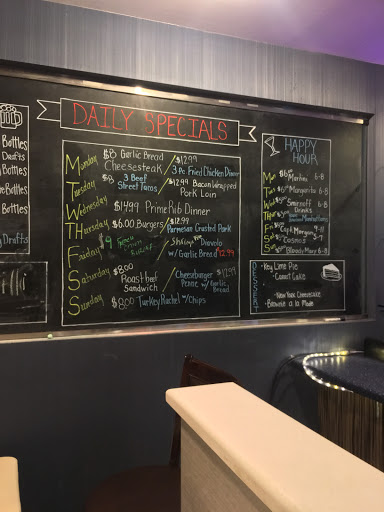 DAILY SPECIALS
Monday $8 Garlic Bread Cheesesteak / $12.99 3 Pc. Fried Chicken Dinner
Tuesday 3 Beef Street Tacos / $12.99 Bacon Wrapped Pork Loin
Wednesday $14.99 Prime Rib Dinner
Thursday $6.00 Burgers / $12.99 Parmesan Crusted Pork
Friday $9 / Shrimp Diavolo w/ Garlic Bread 12.99
Saturday $8.00 Roast beef Sandwich / Cheeseburger Penne w/ Garlic Bread $12.99
Sunday $8.00 Turkey Rachel w/ Chips
Bottles
Drafts
Bottles
Bottles
Bottles
Drafts
HAPPY HOUR
Mon Martini 6-8
Tue Margarita 6-8
Wed Smirnoff Drinks 6-8
Thur Manhattans
Fri Capt Morgan 9-11
Sat Cosmos
Sun Bloody Mary 6-8
DESSERT
• Key Lime Pie
• Carrot Cake
• New York Cheesecake
• Brownie a la Mode